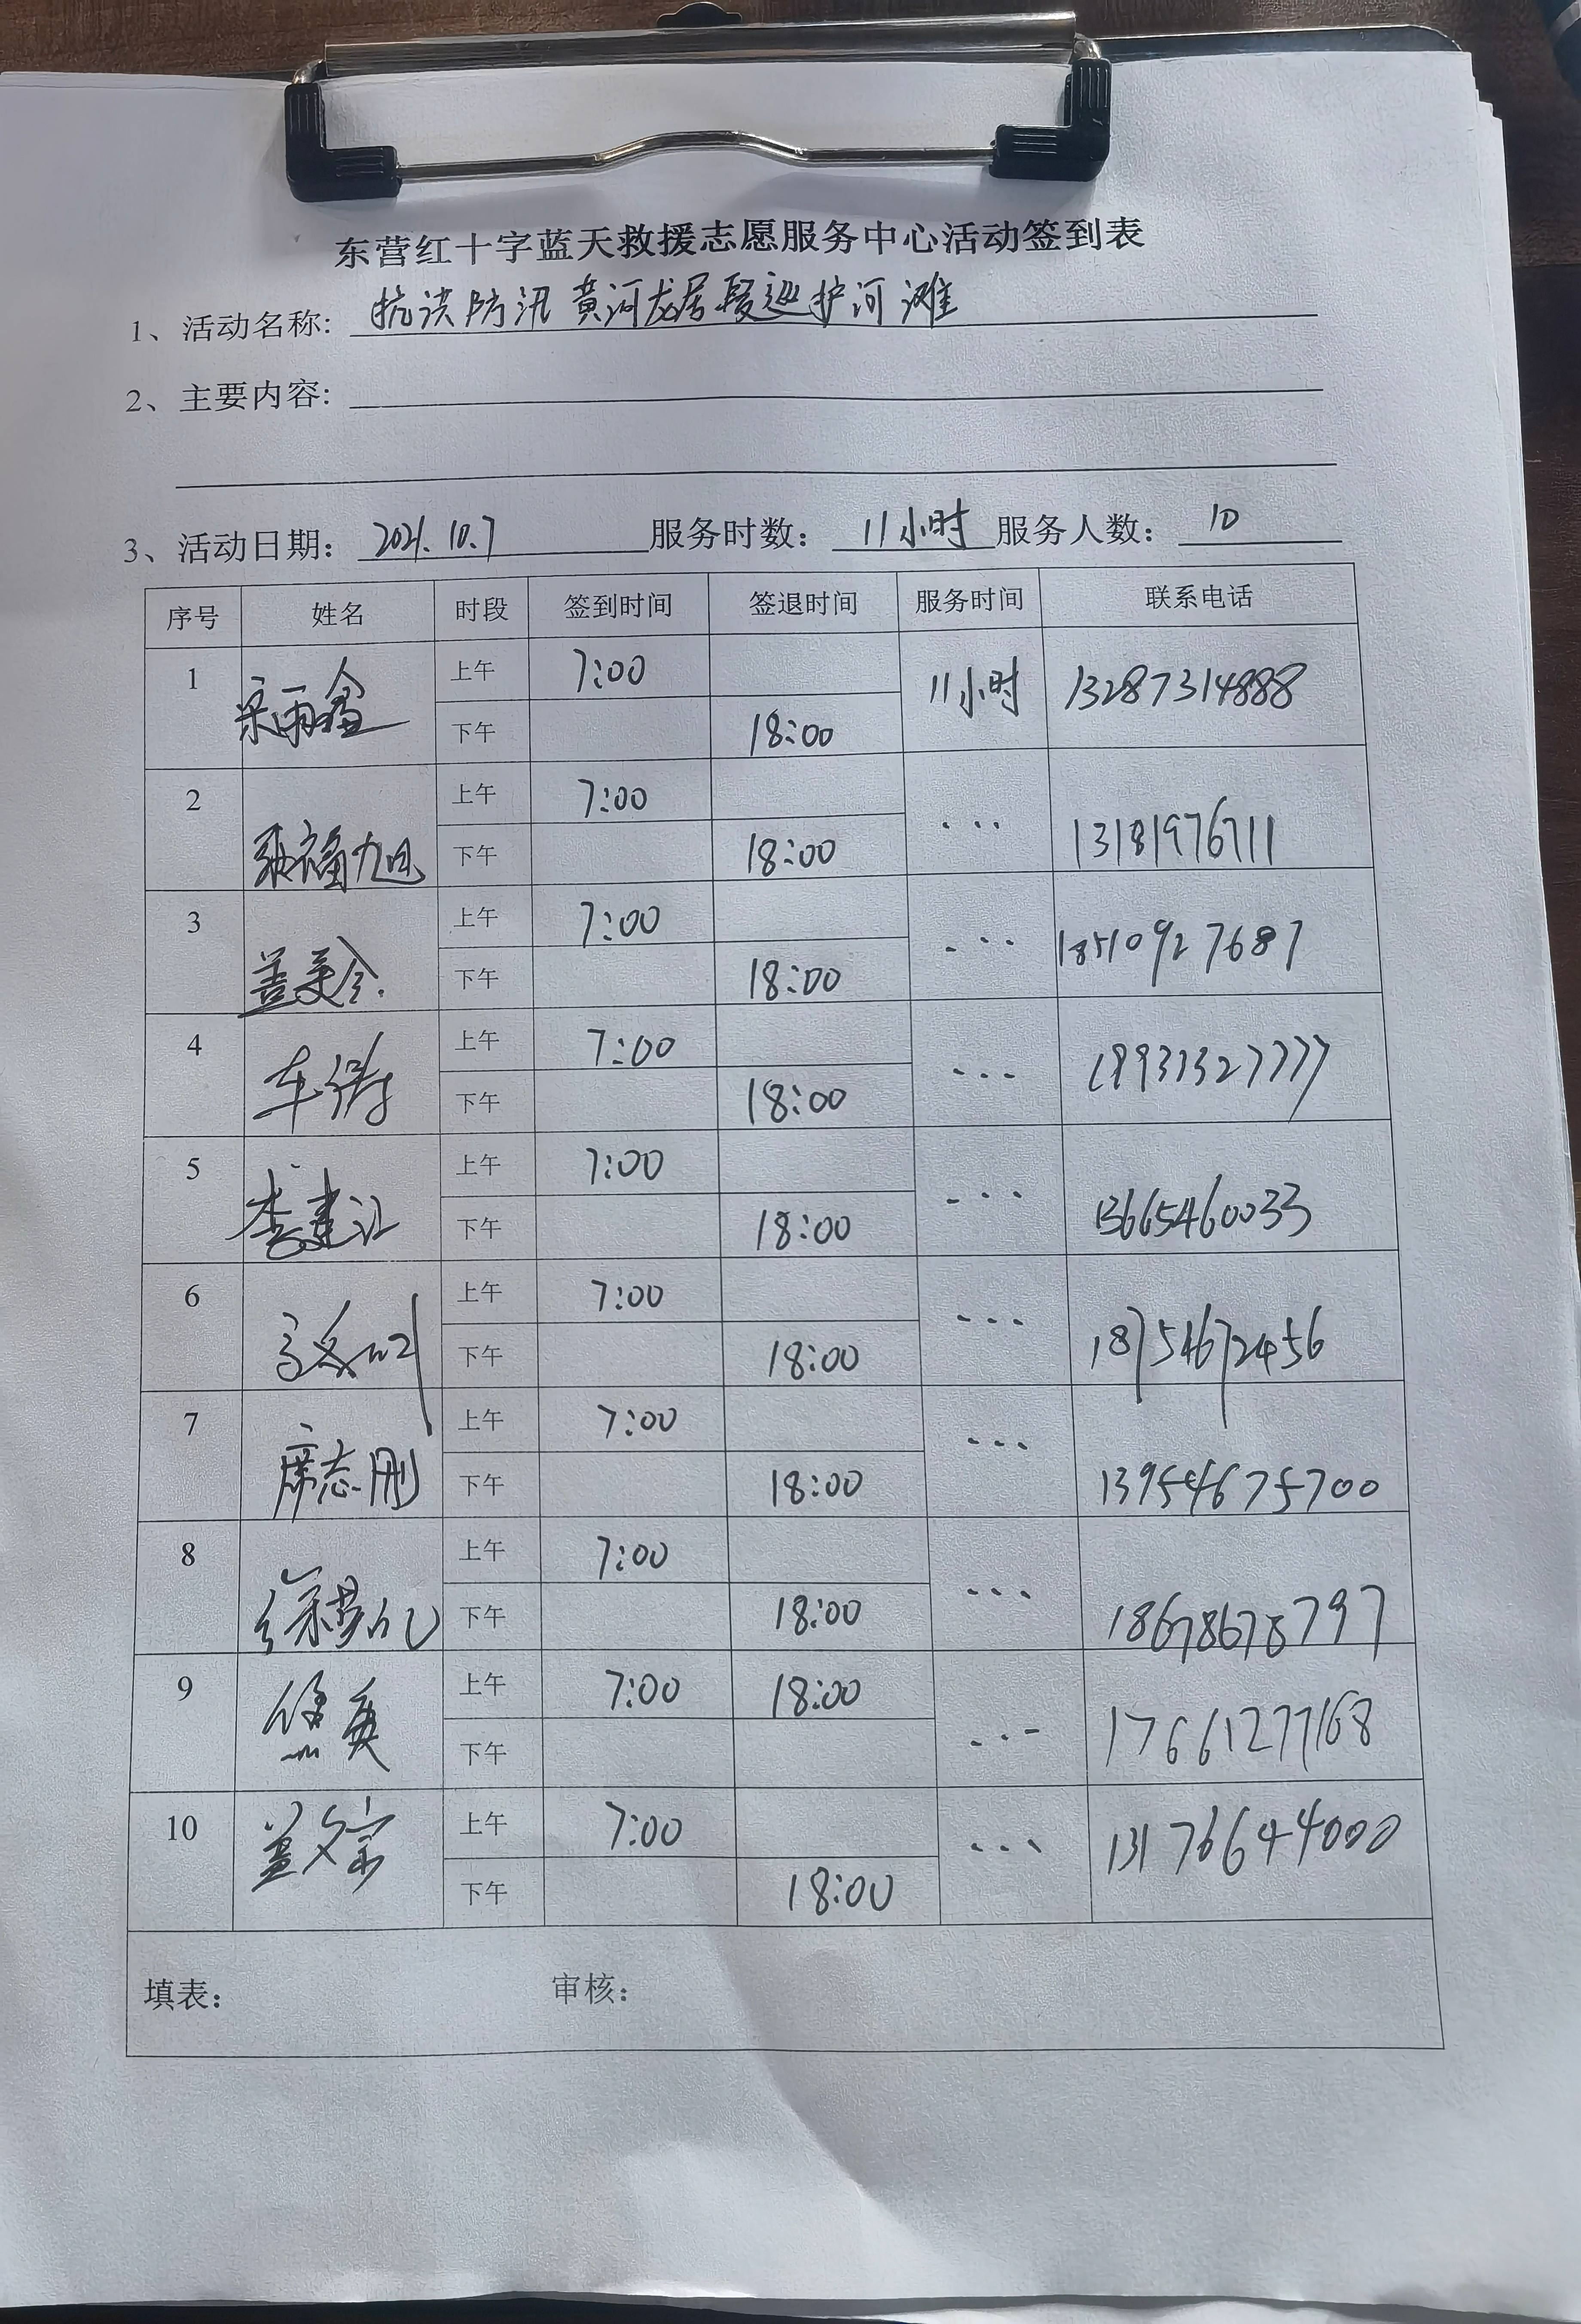 东营红十字蓝天救援志愿服务中心活动签到表
1、活动名称: 抗洪防汛 黄河龙居段巡护河滩
2、主要内容:
3、活动日期: 2021.10.7 服务时数: 11小时 服务人数: 10
序号 姓名 时段 签到时间 签退时间 服务时间 联系电话
1 上午 7:00 11小时 13287314888
宋雨鑫 下午 18:00
2 上午 7:00 ... 13181976711
张福旭 下午 18:00
3 上午 7:00 ... 18510927687
盖美令 下午 18:00
4 上午 7:00 ... 18931327777
车 下午 18:00
5 上午 7:00 ... 13665460033
李建江 下午 18:00
6 上午 7:00 ... 18754672456
高 下午 18:00
7 上午 7:00 ... 13954675700
席志刚 下午 18:00
8 上午 7:00 ... 18678678797
徐梦 下午 18:00
9 上午 7:00 18:00 ... 17661277168
下午
10 上午 7:00 ... 13176644000
盖文宗 下午 18:00
填表: 审核: